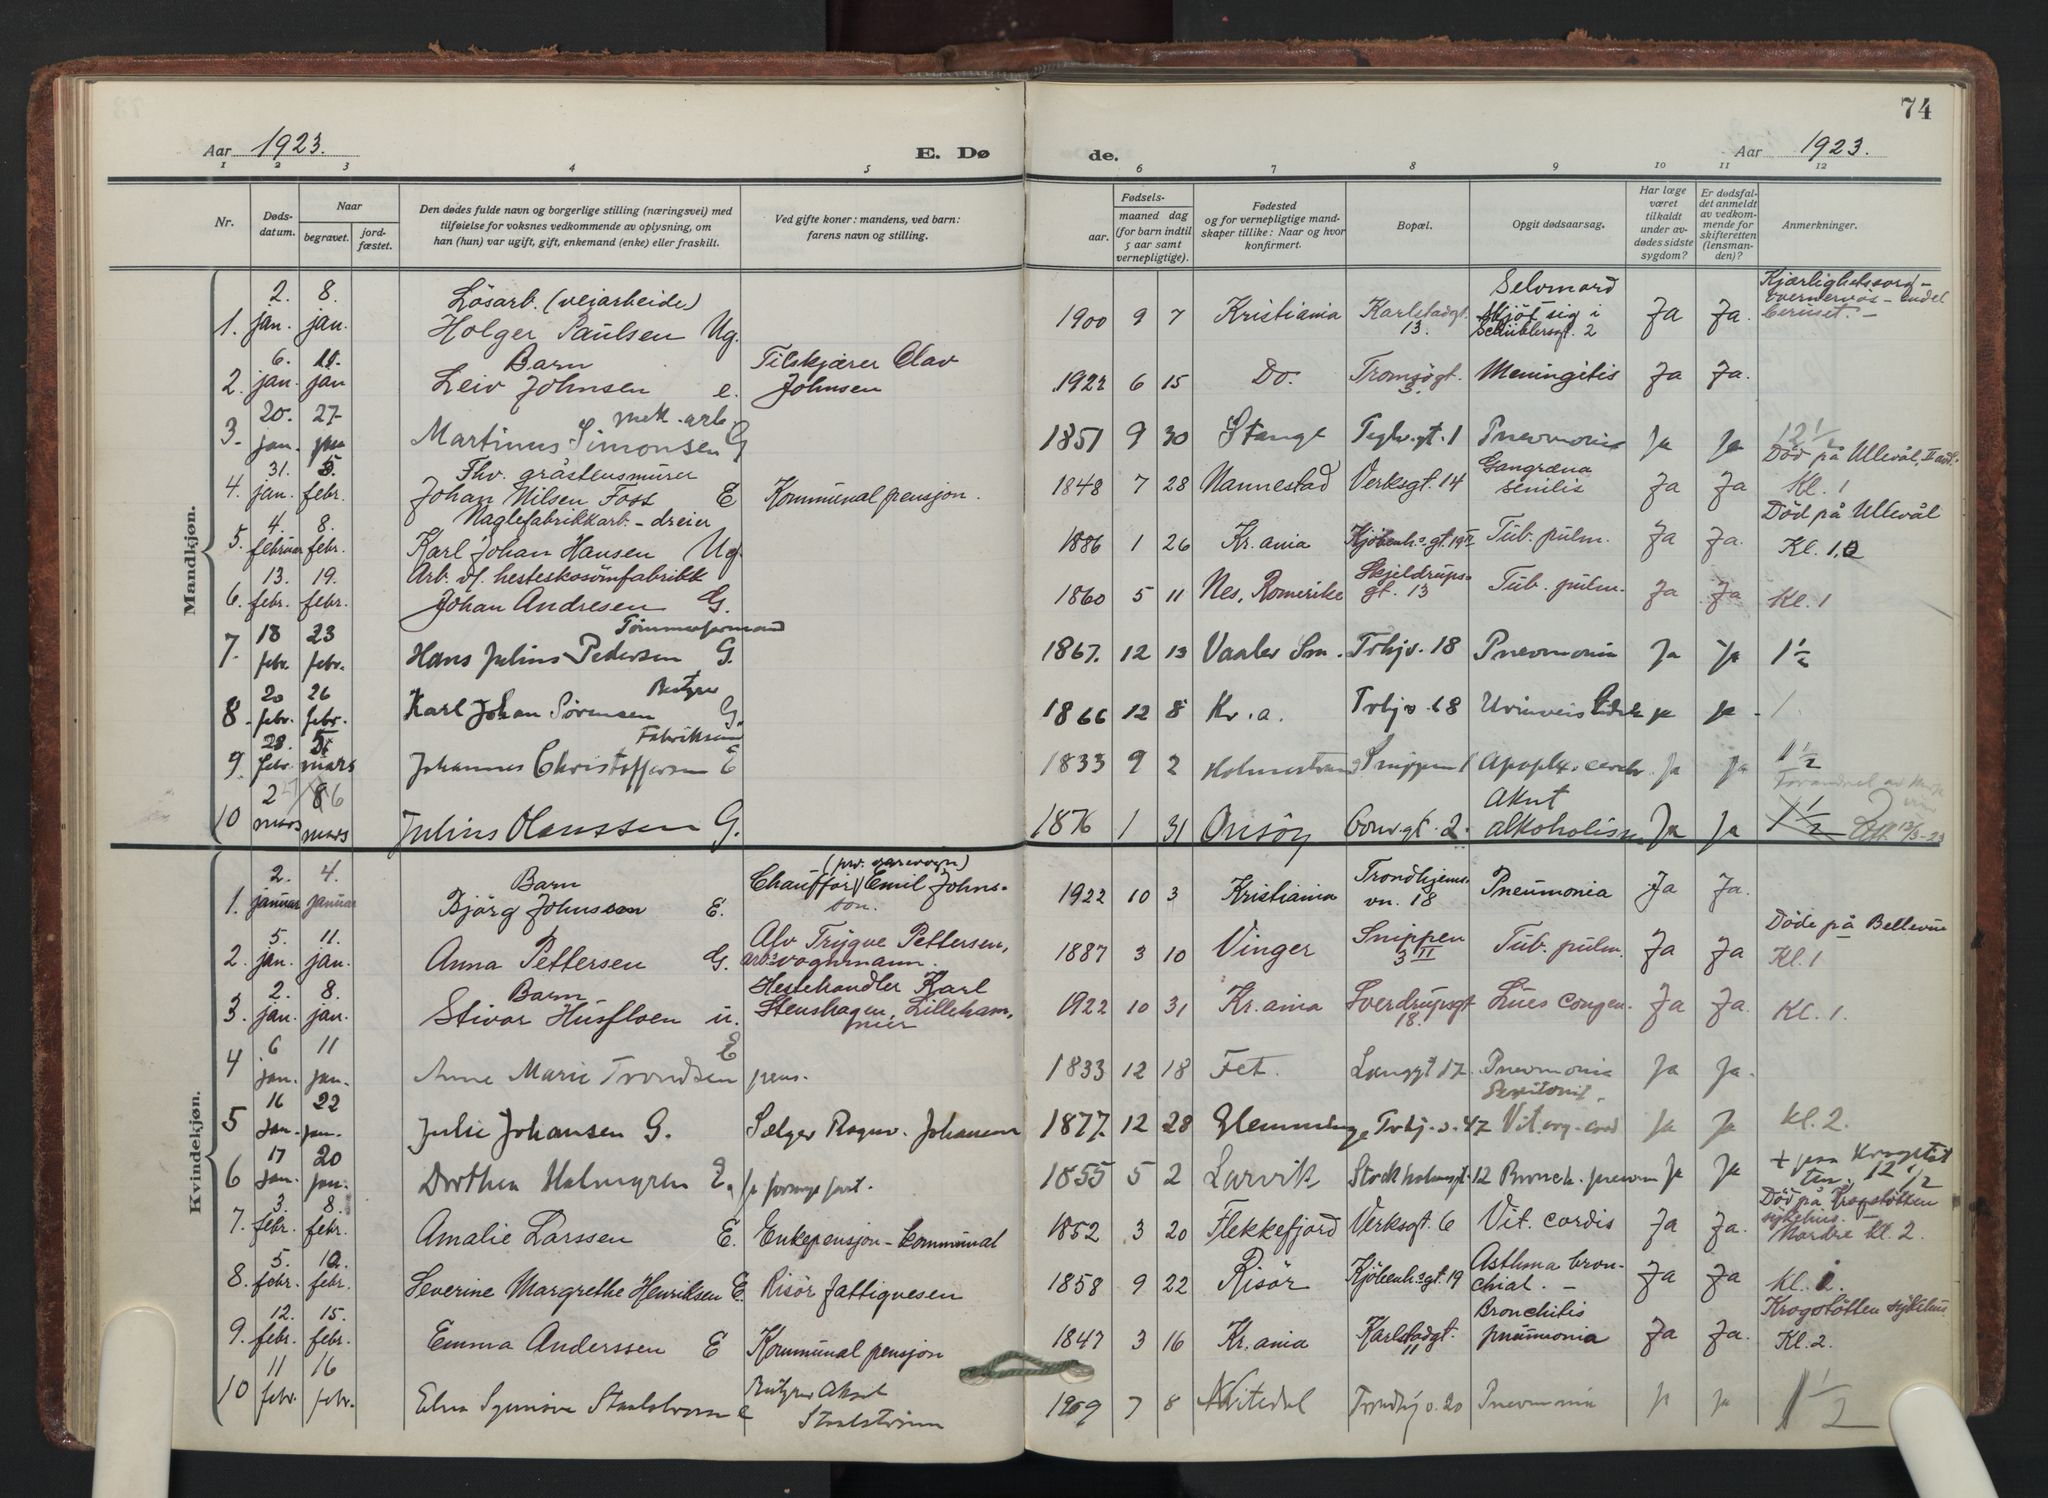 74
Aar 1923.
E. Døde.
Aar 1923.
1 2 3 4 5 6 7 8 9 10 11 12
Nr.
Døds-datum.
Naar
begravet.
jord-fæstet.
Den dødes fulde navn og borgerlige stilling (næringsvei) med
tilføielse for voksnes vedkommende av oplysning, om
han (hun) var ugift, gift, enkemand (enke) eller fraskilt.
Ved gifte koner: mandens, ved barn:
farens navn og stilling.
Fødsels-
aar.
maaned dag
(for barn indtil
5 aar samt
vernepligtige).
Fødested
og for vernepligtige mand-
skaper tillike: Naar og hvor
konfirmert.
Bopæl.
Opgit dødsaarsag.
Har læge
været
tilkaldt
under av-
dødes sidste
sygdom?
Er dødsfal-
det anmeldt
av vedkom-
mende for
skifteretten
(lensman-
den)?
Anmerkninger.
Mandkjøn.
1. 2. jan. 8. jan. Lösarb. (veiarbeide) Holger Paulsen Ug. 1900 9 7 Kristiania Karlstadgt. 13. Selvmord skjöt sig i Schüblersgt. 2 Ja Ja. Kjærlighetssorg -
2. 6. jan. 11. jan Barn Leiv Johnsen e. Filskjærer Olav Johnsen 1922 6 15 Do. Tromsögt. 3. Meningitis Ja Ja.
3. 20. jan. 27. jan mek. arb. Martinus Simonsen G 1851 9 30 Stange Teglv.gt. 1 Pnevmonia Ja Ja 12 1/2 Död på Ullevål, II avd.
4. 31. jan. 5. febr. Fhv. gråstensmurer Johan Nilsen Foss E Kommunal pensjon. 1848 7 28 Nannestad Verksgt. 14 Gangræna senilis Ja Ja Kl. 1
5. 4. februar 8. febr. Naglefabrikkarb. - dreier Karl Johan Hansen Ug. 1886 1 26 Kr.ania Kjöbenh.s gt. 19 II Tub. pulm. Ja Ja. Död på Ullevål Kl. 1.
6. 13. febr. 19. febr. Arb. v/. hesteskosömfabrikk Johan Andresen G. 1860 5 11 Nes, Romerike Skjeldrups-gt. 13 Tub. pulm. Ja Ja Kl. 1
7. 18 febr. 23 febr. Tömmerformand Hans Julius Pedersen G. 1867. 12 13 Vaaler Sm. Trhjv. 18 Pnevmonia Ja Ja 1 1/2
8. 20 febr. 26 febr. Karl Johan Sørensen G. 1866 12 8 Kr.a. Trhj v. 68 Ja Ja 1
9. 28. febr. 5. mars Johannes Christoffersen E 1833 9 2 Holmestrand Snippen 1 Apoplex. cerebr. Ja Ja 1 1/2
10 2 mars 8 mars Julius Olaussen G. 1876 1 31 Onsöy Gönrgt. 2. Akut alkoholism Ja Ja 1 1/2
Kvindekjøn.
1. 2. januar 4. januar Barn Bjørg Johnsson E. Chauffør (pr. varevogn) Emil Johns-son. 1922 10 3 Kristiania Trondhjems-vn. 18 Pneumonia Ja Ja.
2. 5. jan. 11. jan. Anna Pettersen G. Alv Trygve Pettersen, arb. vognmann. 1887 3 10 Vinger Snippen 3 II Tub. pulm. Ja Ja Döde på Bellevue Kl. 1
3. 2. jan. 8. jan. Barn Stivor Husfloen u. Hestehandler Karl Stenshagen, Lilleham,mer 1922 10 31 Kr.ania Sverdrupsgt 18. Lues congen. Ja Ja. Kl. 1.
4 6 jan. 11 jan. Anne Marie Trondsen E pens. 1833 12 18 Fet. Langgt 17. Pnevmonia Ja Ja.
5 16 jan. 22 jan. Julie Johansen G. Sælger Ragnv. Johansen 1877. 12 28 Glemminge Trhj. v. 47 Peritonit. Vit. org. cord Ja Ja kl. 2.
6 17 jan. 20 jan. Dorthea Holmgren E. 1855 5 2 Larvik Stockholmsgt. 12 Bronch. pnevm Ja Ja + paa Krogstøt ten. 12 1/2
7. 3. febr. 8. febr. Amalie Larssen E. Enkepensjon - kommunal 1852 3 20 Flekkefjord Verksgt. 6 Vit. cordis Ja Ja. Död på Krogstötten sykehus. Nordre kl. 2.
8. 5. febr. 10. febr. Severine Margrethe Henriksen E. Risör fattigvesen 1858 9 22 Risör Kjöbenh.sgt. 19 Asthma bron-chial. - Ja Ja. Kl. 2.
9. 12. febr. 15. febr. Emma Anderssen E Kommunal pensjon 1847 3 16 Kr.ania Karlstadgt. 11 Bronchitis pneumonia Ja Ja. Krogstötten sykehus Kl. 2.
10 11 febr. 16 febr. Elna Synnöve Staalstrøm e Aksel Staalström 1909 7 8 Nitedal Trondhj v. 20 Pnevmonia Ja Ja 1 1/2